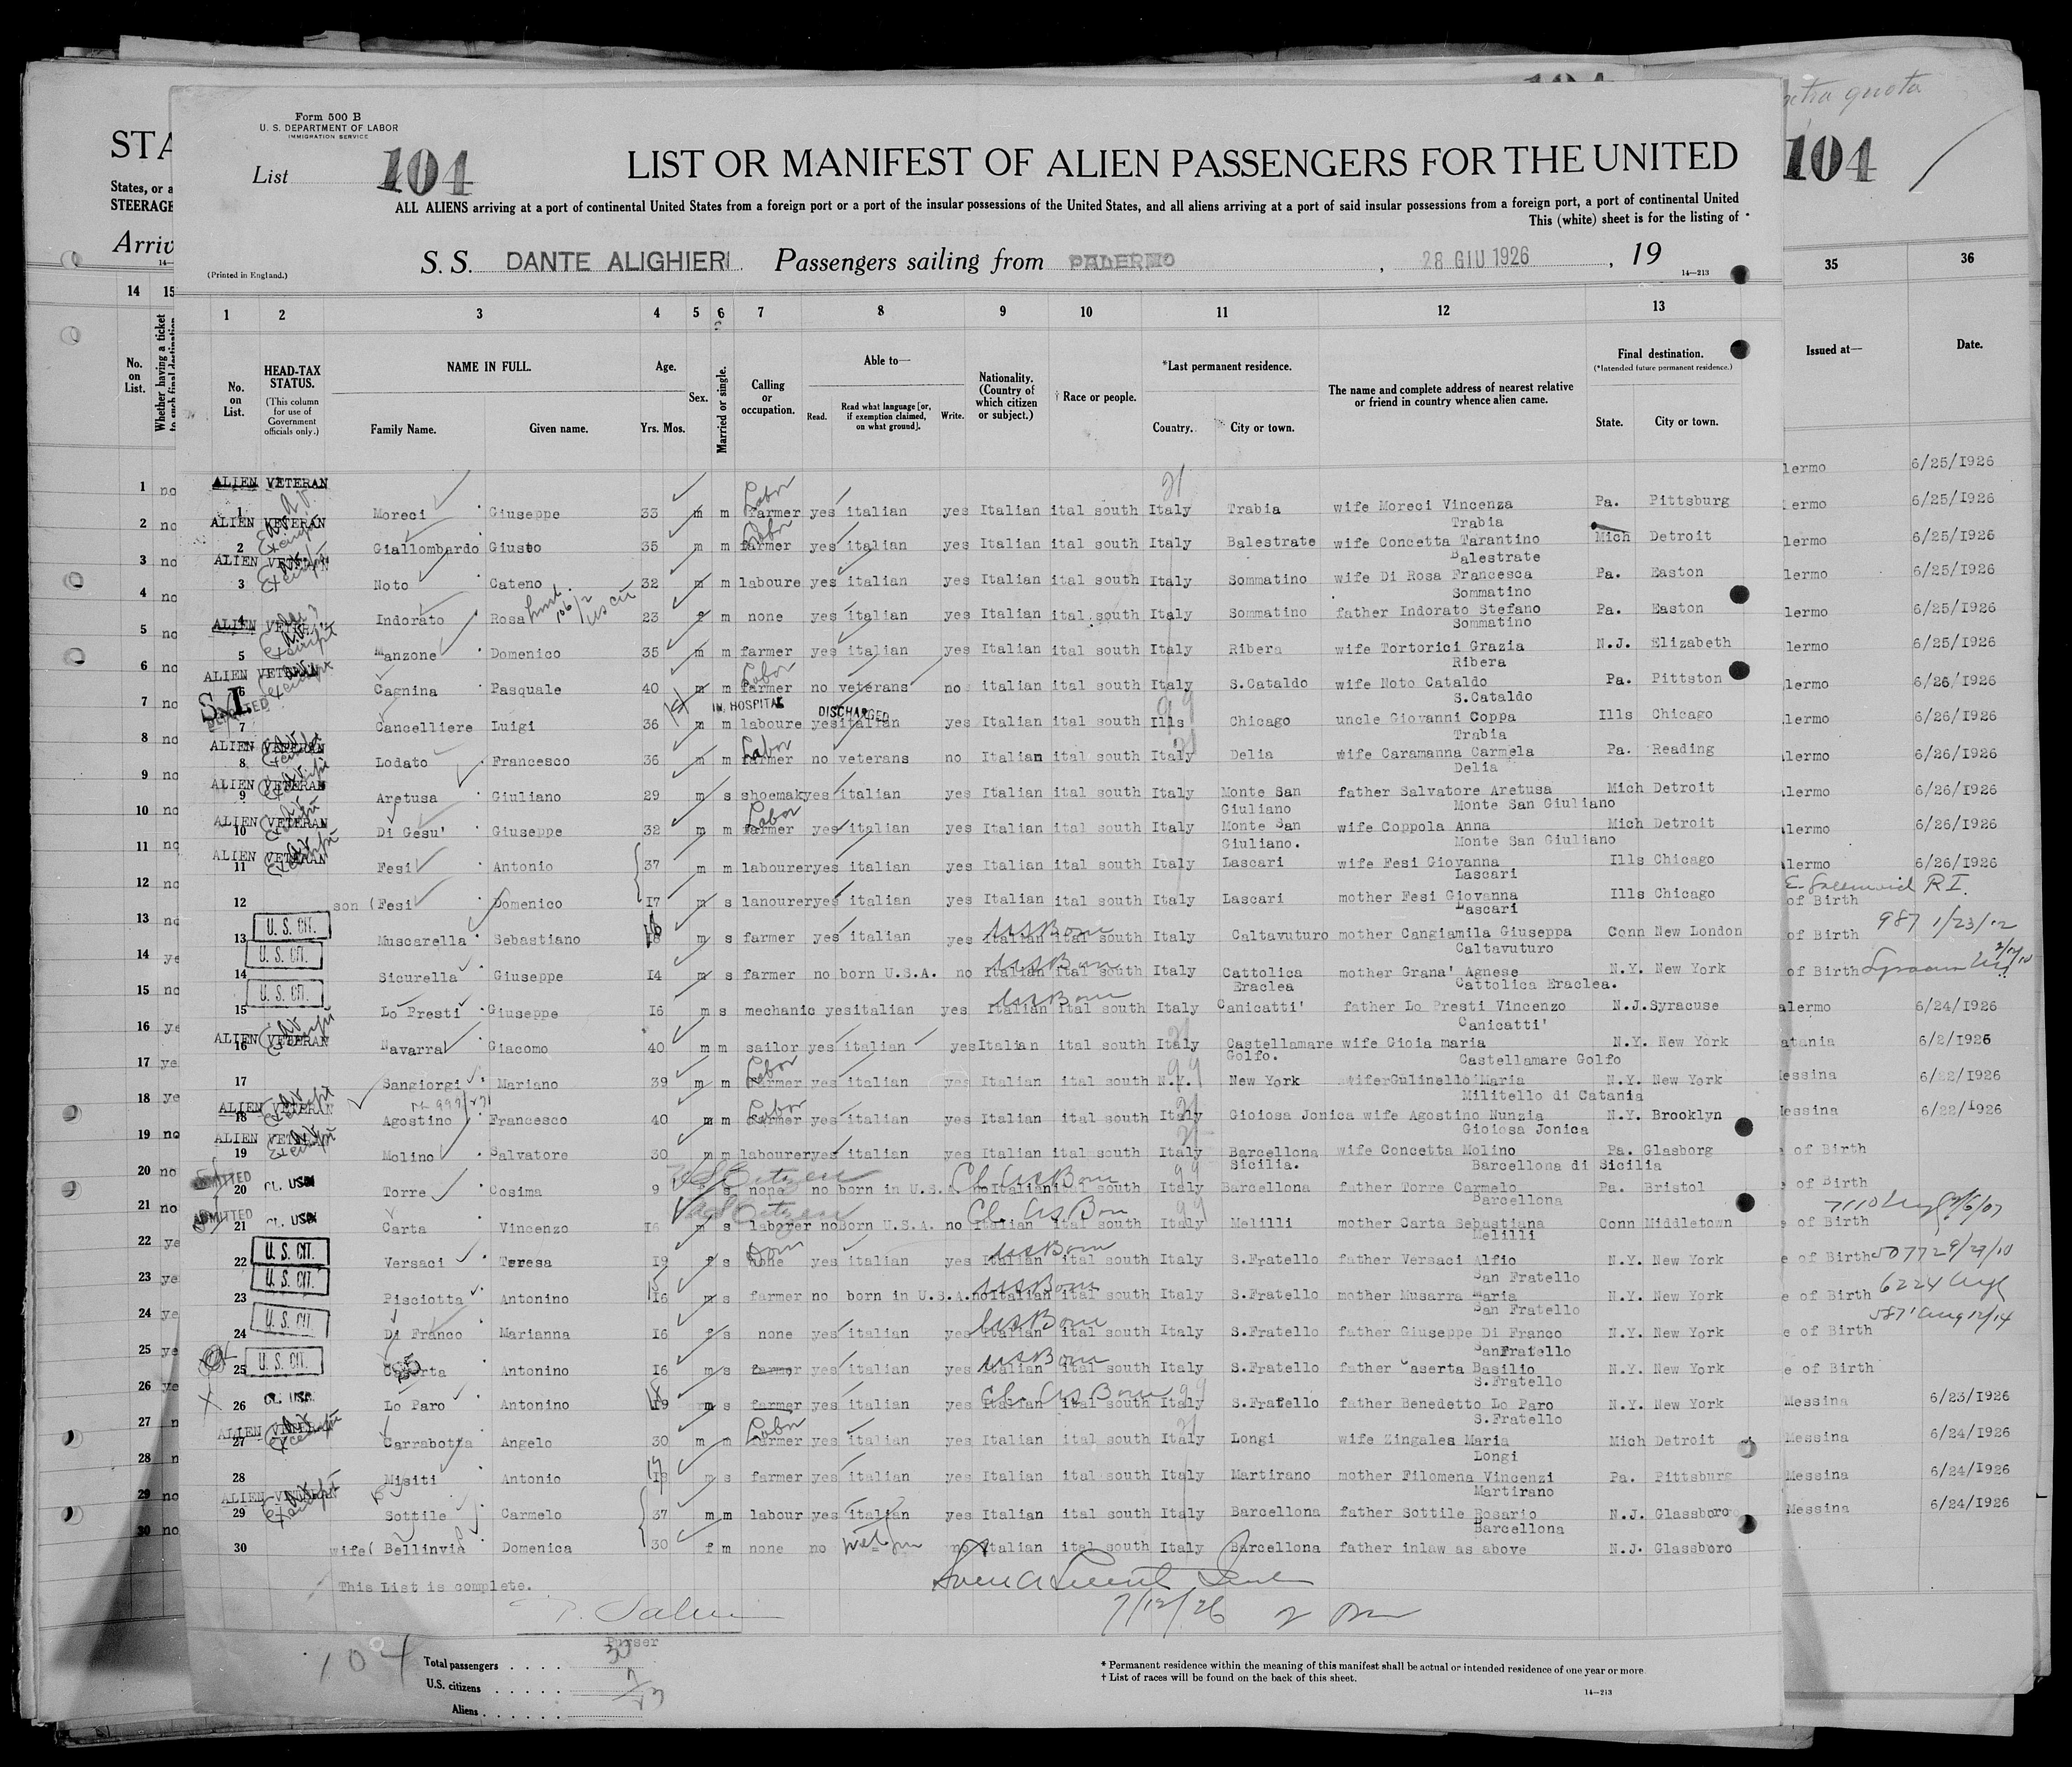 Form 500 B
U. S. DEPARTMENT OF LABOR
IMMIGRATION SERVICE
List 104
LIST OR MANIFEST OF ALIEN PASSENGERS FOR THE UNITED
ALL ALIENS arriving at a port of continental United States from a foreign port or a port of the insular possessions of the United States, and all aliens arriving at a port of said insular possessions from a foreign port, a port of continental United
This (white) sheet is for the listing of
(Printed in England.)
S. S. DANTE ALIGHIERI Passengers sailing from PALERMO, 28 GIU 1926, 19
14—213
1 2 3 4 5 6 7 8 9 10 11 12 13
No. on List.
HEAD-TAX STATUS.
(This column for use of Government officials only.)
NAME IN FULL.
Family Name. Given name.
Age.
Yrs. Mos.
Sex.
Married or single.
Calling or occupation.
Able to—
Read. Read what language [or, if exemption claimed, on what ground]. Write.
Nationality. (Country of which citizen or subject.)
† Race or people.
*Last permanent residence.
Country. City or town.
The name and complete address of nearest relative or friend in country whence alien came.
Final destination.
(*Intended future permanent residence.)
State. City or town.
ALIEN VETERAN
1 Moreci Giuseppe 33 m m farmer Labor yes italian yes Italian ital south Italy Trabia wife Moreci Vincenza Pa. Pittsburg
ALIEN VETERAN Trabia
2 Giallombardo Giusto 35 m m farmer Labor yes italian yes Italian ital south Italy Balestrate wife Concetta Tarantino Mich Detroit
ALIEN VETERAN Balestrate
3 Noto Cateno 32 m m laboure yes italian yes Italian ital south Italy Sommatino wife Di Rosa Francesca Pa. Easton
Sommatino
4 Indorato Rosa 23 f m none yes italian yes Italian ital south Italy Sommatino father Indorato Stefano Pa. Easton
ALIEN Sommatino
5 Manzone Domenico 35 m m farmer yes italian yes Italian ital south Italy Ribera wife Tortorici Grazia N.J. Elizabeth
ALIEN VETERAN Ribera
6 Cagnina Pasquale 40 m m farmer Labor no veterans no italian ital south Italy S.Cataldo wife Noto Cataldo Pa. Pittston
S.I. IN HOSPITAL DISCHARGED S.Cataldo
7 Cancelliere Luigi 36 m m laboure yes italian yes Italian ital south Ills Chicago uncle Giovanni Coppa Ills Chicago
ALIEN VETERAN Trabia
8 Lodato Francesco 36 m m farmer Labor no veterans no Italian ital south Italy Delia wife Caramanna Carmela Pa. Reading
ALIEN VETERAN Delia
9 Aretusa Giuliano 29 m s shoemak yes italian yes Italian ital south Italy Monte San Giuliano father Salvatore Aretusa Mich Detroit
ALIEN VETERAN Monte San Giuliano
10 Di Gesu' Giuseppe 32 m m farmer Labor yes italian yes Italian ital south Italy Monte San Giuliano. wife Coppola Anna Mich Detroit
ALIEN VETERAN Monte San Giuliano
11 Fesi Antonio 37 m m labourer yes italian yes Italian ital south Italy Lascari wife Fesi Giovanna Ills Chicago
Lascari
12 son (Fesi Domenico 17 m s lanourer yes italian yes Italian ital south Italy Lascari mother Fesi Giovanna Ills Chicago
U. S. CIT. Lascari
13 Muscarella Sebastiano m s farmer yes italian yes Italian US Born ital south Italy Caltavuturo mother Cangiamila Giuseppa Conn New London
U. S. CIT. Caltavuturo
14 Sicurella Giuseppe 14 m s farmer no born U.S.A. no Italian US Born ital south Italy Cattolica Eraclea mother Grana' Agnese N.Y. New York
U. S. CIT. Cattolica Eraclea.
15 Lo Presti Giuseppe 16 m s mechanic yes italian yes Italian US Born ital south Italy Canicatti' father Lo Presti Vincenzo N.J. Syracuse
ALIEN VETERAN Canicatti'
16 Navarra Giacomo 40 m m sailor yes italian yes Italian ital south Italy Castellamare Golfo. wife Gioia maria N.Y. New York
Castellamare Golfo
17 Sangiorgi Mariano 39 m m farmer Labor yes italian yes Italian ital south N.Y. New York wife Gulinello Maria N.Y. New York
ALIEN VETERAN Militello di Catania
18 Agostino Francesco 40 m m farmer Labor yes italian yes Italian ital south Italy Gioiosa Jonica wife Agostino Nunzia N.Y. Brooklyn
ALIEN VETERAN Gioiosa Jonica
19 Molino Salvatore 30 m m labourer yes italian yes Italian ital south Italy Barcellona Sicilia. wife Concetta Molino Pa. Glasborg
ADMITTED CL. USB US Citizen Barcellona di Sicilia
20 Torre Cosima 9 f s none no born in U.S.A. no Italian Cl. US Born ital south Italy Barcellona father Torre Carmelo Pa. Bristol
ADMITTED CL. USB US Citizen Barcellona
21 Carta Vincenzo 16 m s laborer no Born U.S.A. no Italian Cl. US Born ital south Italy Melilli mother Carta Sebastiana Conn Middletown
U. S. CIT. Melilli
22 Versaci Teresa 19 f s none Dom yes italian yes Italian US Born ital south Italy S.Fratello father Versaci Alfio N.Y. New York
U. S. CIT. San Fratello
23 Pisciotta Antonino 16 m s farmer no born in U.S.A. no Italian US Born ital south Italy S.Fratello mother Musarra Maria N.Y. New York
U. S. CIT San Fratello
24 Di Franco Marianna 16 f s none yes italian yes Italian US Born ital south Italy S.Fratello father Giuseppe Di Franco N.Y. New York
U. S. CIT. SanFratello
25 Antonino 16 m s farmer yes italian yes Italian US Born ital south Italy S.Fratello father Caserta Basilio N.Y. New York
CL. USB. S.Fratello
26 Lo Paro Antonino 19 m s farmer yes italian yes Italian Cl. US Born ital south Italy S.Fratello father Benedetto Lo Paro N.Y. New York
ALIEN S.Fratello
27 Carrabotta Angelo 30 m m farmer Labor yes italian yes Italian ital south Italy Longi wife Zingales Maria Mich Detroit
Longi
28 Misiti Antonio 18 m s farmer yes italian yes Italian ital south Italy Martirano mother Filomena Vincenzi Pa. Pittsburg
ALIEN VETERAN Martirano
29 Sottile Carmelo 37 m m labour yes italian yes Italian ital south Italy Barcellona father Sottile Rosario N.J. Glassboro
Barcellona
30 wife( Bellinvia Domenica 30 f m none no no Italian ital south Italy Barcellona father inlaw as above N.J. Glassboro
This List is complete.
7/12/26
Purser
104
Total passengers 30
U.S. citizens 7
Aliens 23
* Permanent residence within the meaning of this manifest shall be actual or intended residence of one year or more.
† List of races will be found on the back of this sheet.
14—213
STA
States, or a
STEERAGE
Arriv
14 15
No. on List.
Whether having a ticket to such final destination
1 no
2 no
3 no
4 no
5 no
6 no
7 no
8 no
9 no
10 no
11 no
12 no
13 no
14 ye
15 no
16 ye
17 ye
18 ye
19 no
20 no
21 no
22 ye
23 ye
24 ye
25 ye
26 ye
27 n
28 n
29 no
30 no
extra quota
104
35 36
Issued at— Date.
lermo 6/25/1926
lermo 6/25/1926
lermo 6/25/1926
lermo 6/25/1926
lermo 6/25/1926
lermo 6/25/1926
lermo 6/26/1926
lermo 6/26/1926
lermo 6/26/1926
lermo 6/26/1926
lermo 6/26/1926
lermo 6/26/1926
E. Greenwich R.I.
of Birth
of Birth 987 1/23/02
of Birth
alermo 6/24/1926
atania 6/2/1926
essina 6/22/1926
essina 6/22/1926
e of Birth
e of Birth
e of Birth
e of Birth 50772 9/27/10
e of Birth 6224
e of Birth
e of Birth
Messina 6/23/1926
Messina 6/24/1926
Messina 6/24/1926
Messina 6/24/1926